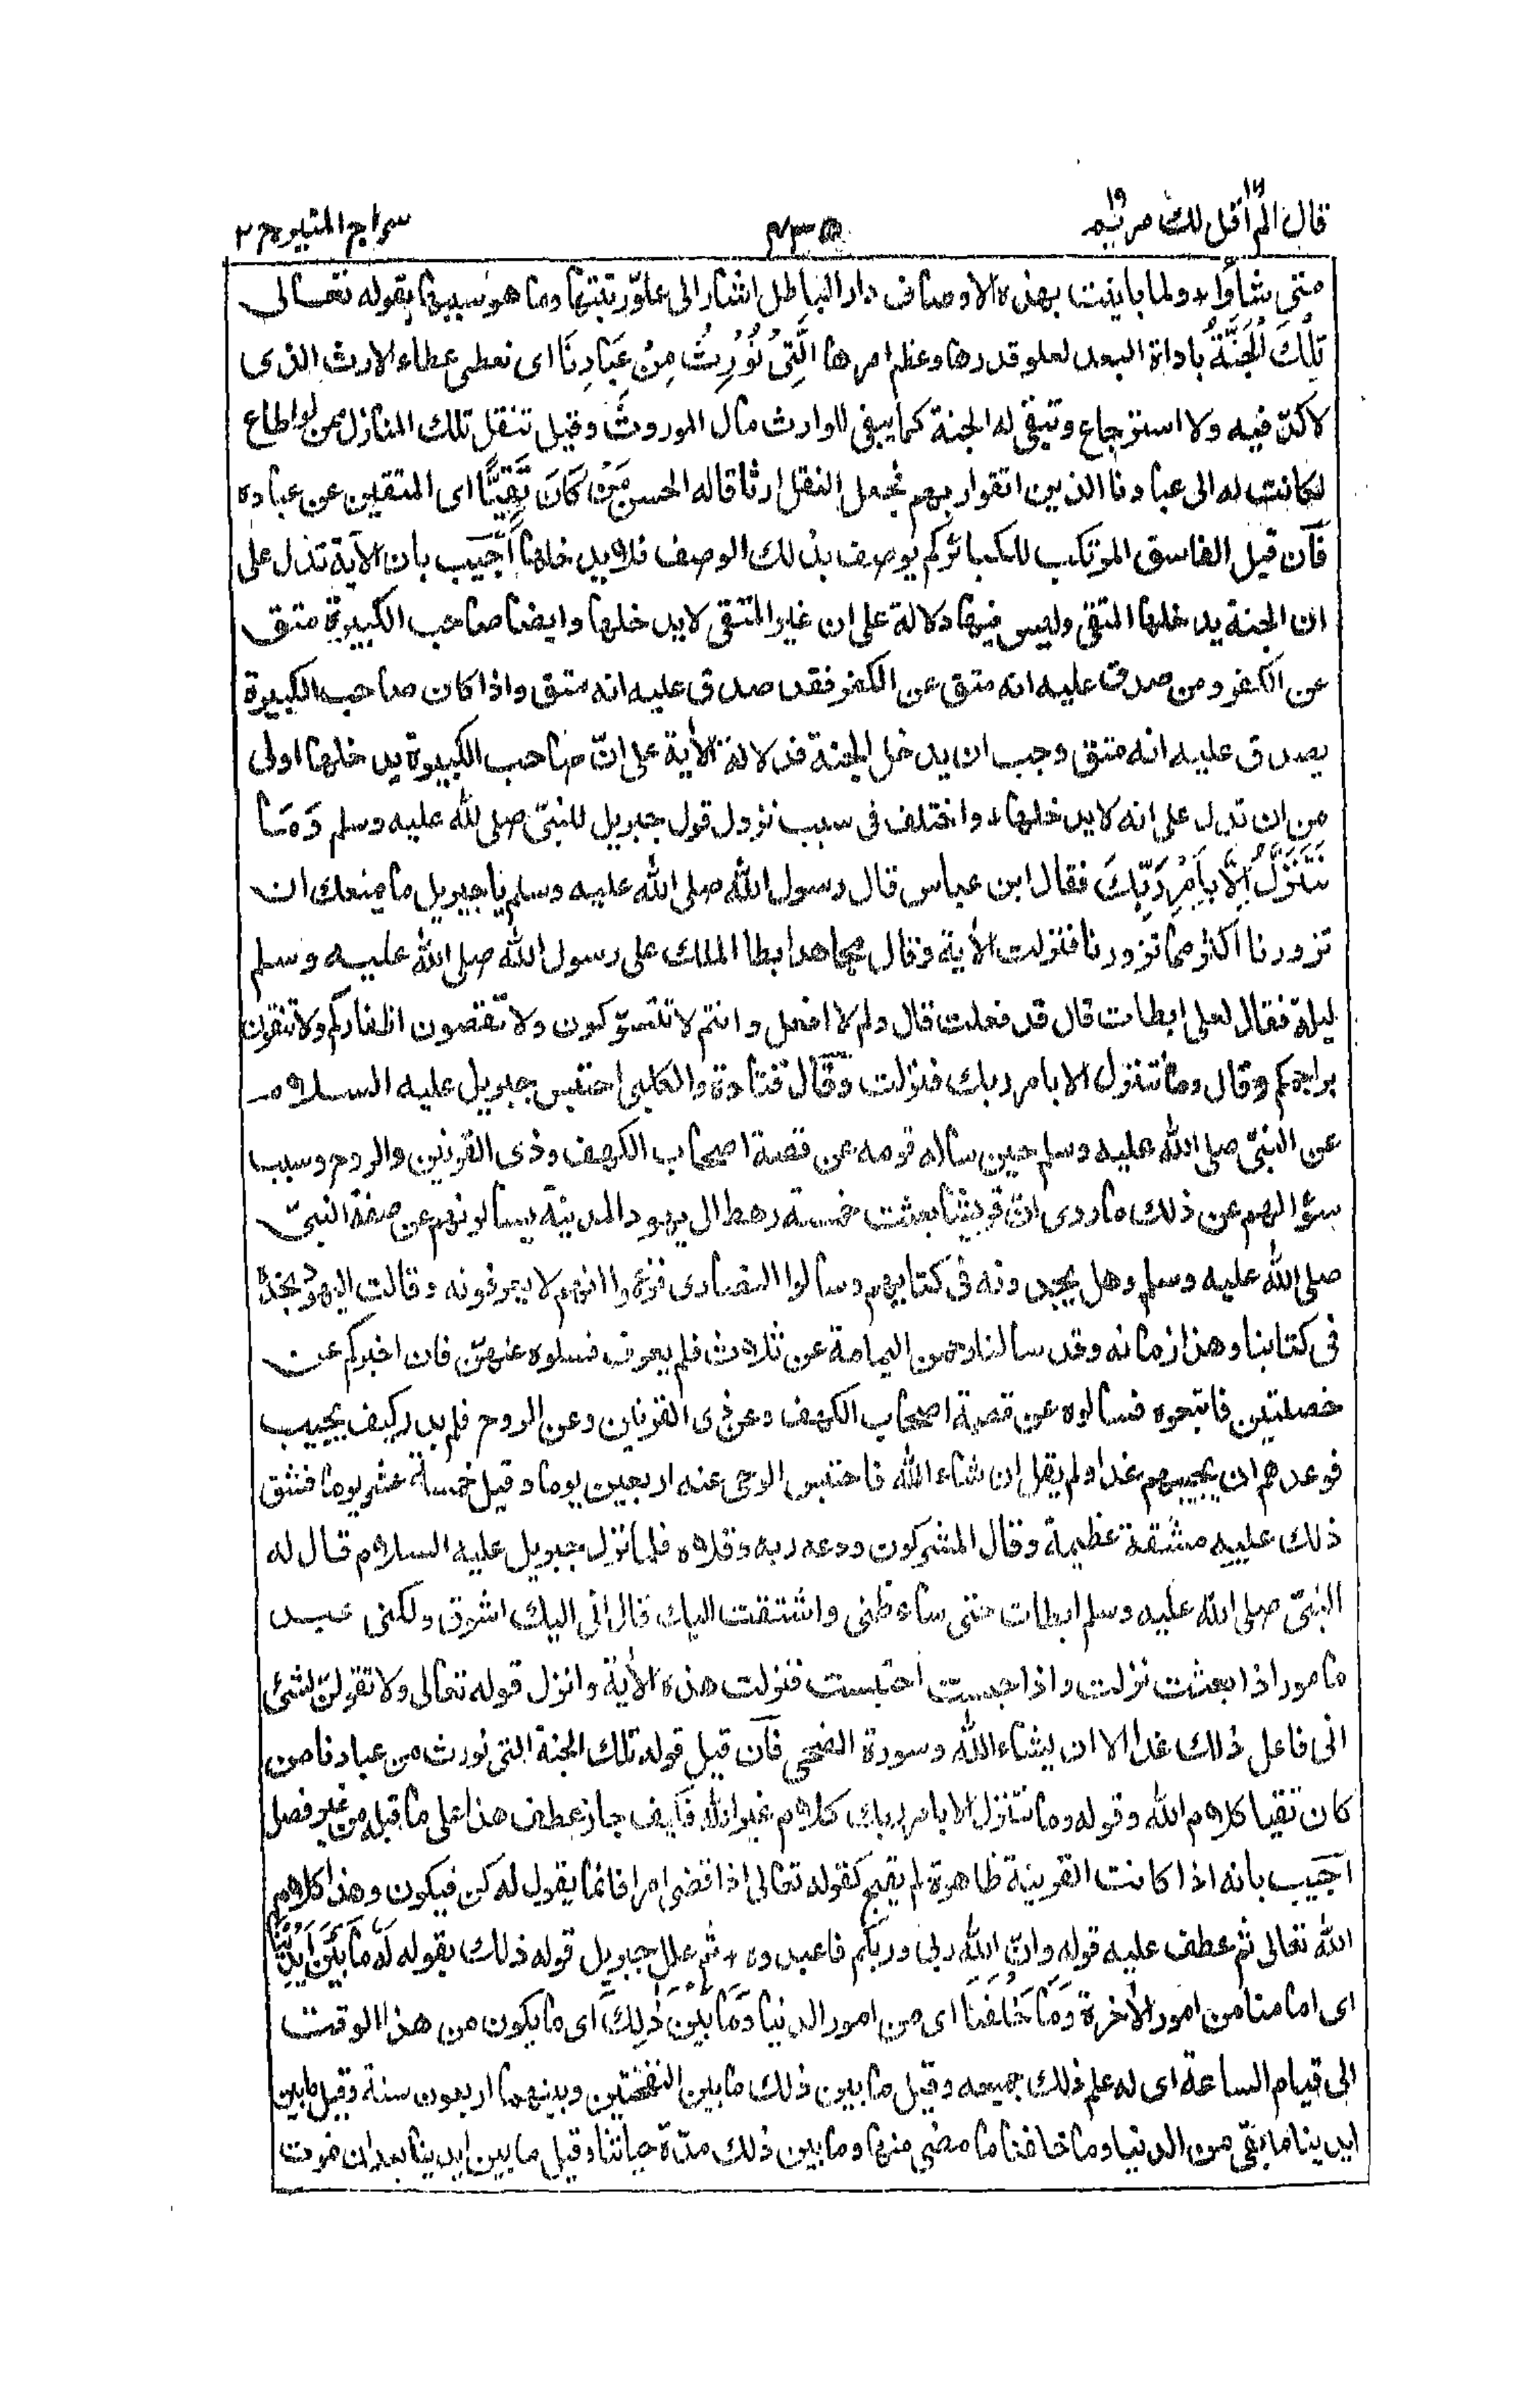 قال الم اقل لك ١٦ مريم ١٩
٤٣٥
سراج المنير ج ٢
متى شاؤا، ولما باينت بهذه الاوصاف دار الباطل اشار الى علوّ رتبتها وما هو سببها بقوله تعالى
تِلْكَ الْجَنَّةُ باداة البعد لعلو قدرها وعظم امرها الَّتِيْ نُوْرِثُ مِنْ عِبَادِنَا اى نعطى عطاء الارث الذى
لا كدّ فيه ولا استرجاع وتبقى له الجنة كما يبقى للوارث مال الموروث وقيل تنقل تلك المنازل ممن لو اطاع
لكانت له الى عبادنا الذين اتقوا ربهم فجعل النقل ارثا قاله الحسن مَنْ كَانَ تَقِيًّا اى المتقين عن عباده
فان قيل الفاسق المرتكب للكبائر كم يوصف بذلك الوصف فلا يدخلها اجيب بان الآية تدل على
ان الجنة يدخلها المتقى وليس فيها دلالة على ان غير المتقى لا يدخلها وايضا صاحب الكبيرة متق
عن الكفر ومن صدق عليه انه متق عن الكفر فقد صدق عليه انه متق واذا كان صاحب الكبيرة
يصدق عليه انه متق وجب ان يدخل الجنة فدلالة الأية على انّ صاحب الكبيرة يدخلها اولى
من ان تدل على انه لا يدخلها، واختلف فى سبب نزول قول جبريل للنبىّ صلى الله عليه وسلم وَمَا
نَتَنَزَّلُ اِلَّا بِاَمْرِ رَبِّكَ فقال ابن عباس قال رسول الله صلى الله عليه وسلم يا جبريل ما منعك ان
تزورنا اكثر مما تزورنا فنزلت الأية وقال مجاهد ابطا الملك على رسول الله صلى الله عليه وسلم
ليلة فقال لعلى ابطات قال قد فعلت قال ولم لا افعل وانتم لا تتسوّكون ولا تقصون اظفاركم ولا تنقون
براجمكم وقال وما نتنزل الا بامر ربك فنزلت وقال قتادة والكلبى احتبس جبريل عليه السلام
عن النبىّ صلى الله عليه وسلم حين ساله قومه عن قصة اصحاب الكهف وذى القرنين والروح وسبب
سؤالهم عن ذلك ما روى انّ قريشا بعثت خمسة رهط الى يهود المدينة يسالونهم عن صفة النبىّ
صلى الله عليه وسلم وهل يجدونه فى كتابهم وسالوا النصارى فزعموا انهم لا يعرفونه وقالت اليهود نجده
فى كتابنا وهذا زمانه وقد سالنا رحمن اليمامة عن ثلاث فلم يعرف فسلوه عنهنّ فان اخبركم عن
خصلتين فاتبعوه فسالوه عن قصة اصحاب الكهف وعن ذى القرنين وعن الروح فلم يدر كيف يجيب
فوعدهم ان يجيبهم غدا ولم يقل ان شاء الله فاحتبس الوحى عنه اربعين يوما وقيل خمسة عشر يوما فشق
ذلك عليه مشقة عظيمة وقال المشركون ودعه ربه وقلاه فلما نزل جبريل عليه السلام قال له
النبىّ صلى الله عليه وسلم ابطات حتى ساء ظنى واشتقت اليك قال انى اليك اشوق ولكنى عبد
مامور اذا بعثت نزلت واذا حبست احتبست فنزلت هذه الأية وانزل قوله تعالى ولا تقولنّ لشئ
انى فاعل ذلك غدا الا ان يشاء الله وسورة الضحى فان قيل قوله تلك الجنة التى نورث من عبادنا من
كان تقيا كلام الله وقوله وما نتنزل الا بامر ربك كلام غير الله فكيف جاز عطف هذا على ما قبله من غير فصل
اجيب بانه اذا كانت القرينة ظاهرة لم يقبح كقوله تعالى اذا قضى امرا فانما يقول له كن فيكون وهذا كلام
الله تعالى ثم عطف عليه قوله وانّ الله ربى وربكم فاعبدوه، ثم علل جبريل قوله ذلك بقوله لَهٗ مَا بَيْنَ اَيْدِيْنَا
اى امامنا من امور الأخرة وَمَا خَلْفَنَا اى من امور الدنيا وَمَا بَيْنَ ذٰلِكَ اى ما يكون من هذا الوقت
الى قيام الساعة اى له علم ذلك جميعه وقيل ما بين ذلك ما بين النفختين وبينهما اربعون سنة وقيل ما بين
ايدينا ما بقى من الدنيا وما خلفنا ما مضى منها وما بين ذلك مدّة حياتنا وقيل ما بين ايدينا بعد ان نموت